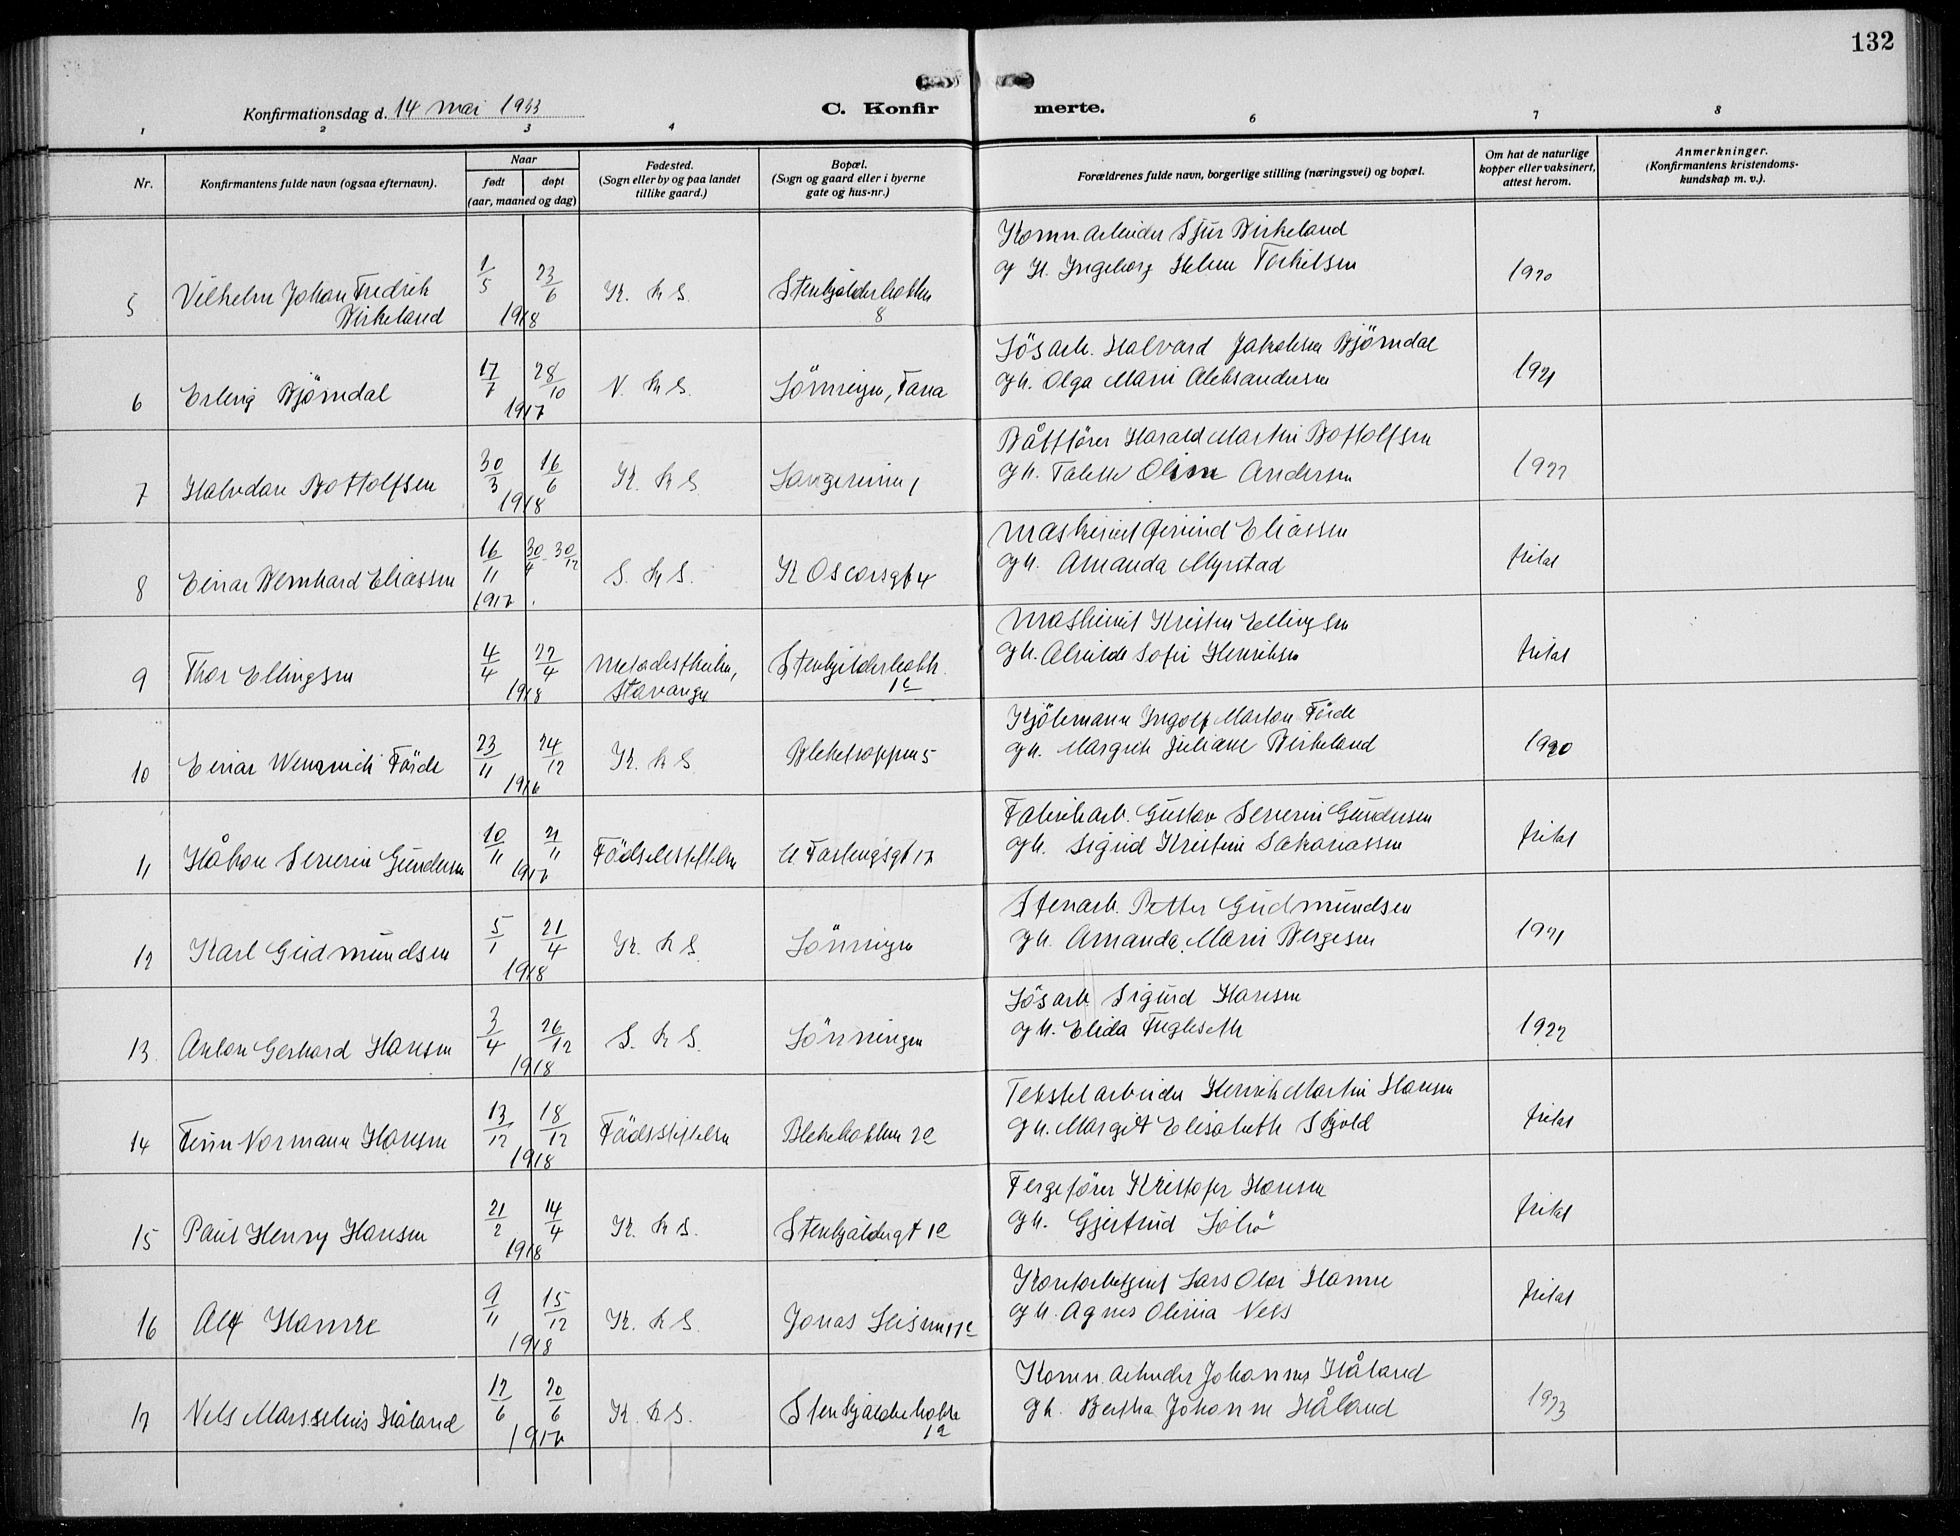 132
Konfirmationsdag d. 14 mai 1933
C. Konfirmerte.
1 2 3 4 6 7 8
Nr.
Konfirmantens fulde navn (ogsaa efternavn).
Naar
født døpt
(aar, maaned og dag)
Fødested.
(Sogn eller by og paa landet
tillike gaard.)
Bopæl.
(Sogn og gaard eller i byerne
gate og hus-nr.)
Forældrenes fulde navn, borgerlige stilling (næringsvei) og bopæl.
Om hat de naturlige
kopper eller vaksinert,
attest herom.
Anmerkninger.
(Konfirmantens kristendoms-
kundskap m. v.).
5 Vilhelm Johan Fredrik
Birkeland
1/5 23/6
1918
K. k S.
Stenkjälderbakken
8
Komm. arbeider Sjur Birkeland
og H. Ingeborg Helene Torkilsen
1920
6 Erling Björndal
17/7 28/10
1917
N. k S.
Lönningen, Fana
Lösarb. Halvard Jakobsen Björndal
og h. Olga Marie Aleksandersen
1921
7 Halvdan Bottolfsen
30/3 16/6
1918
K. k S
1
Båtförer Harald Martin Bottolfsen
og h. Talette Oline Andersen
1922
8 Einar Bernhard Eliassen
16/11 30/4 - 30/12
1917
S. k S.
K Oscarsgt 4
Maskinist Eliassen
og h. Amanda Myrstad
frikt
9 Thor Ellingsen
4/4 22/4
1918
Stavanger
Stenkjälderbakk.
1c
Maskinist Kristen Ellingsen
og h. Sofie Henriksen
frikt
10 Einar Förde
23/11 24/12
1916
K. k S.
5
Kjölemann Ingolf Marton Förde
og h. Margrete Juliane Birkeland
1920
11 Håkon Severin Gundersen
10/11 21/11
1917
Födselsstiftelsen
17
Fabrikarb. Gustav Severin Gundersen
og h. Sigrid Kristine Sakariassen
frikt
12 Karl Gudmundsen
5/1 21/4
1918
K. k S.
Lönningen
Stenarb. Petter Gudmundsen
og h. Amanda Marie Bergesen
1921
13 Anton Gerhard Hansen
3/4 26/12
1918
S. k S.
Lönningen
Lösarb Sigurd Hansen
og h. Elida Fugleseth
1922
14 Finn Normann Hansen
13/12 18/12
1918
Födsstiftelsen
Blekebakken 2c
Tekstelarbeider Henrik Martin Hansen
og h. Margit Elisabeth Skjold
frikt
15 Paul Henry Hansen
21/2 14/4
1918
K. k S.
Stenkjäldergt 1c
Fergeförer Kristofer Hansen
og h. Gjertrud
frikt
16 Alf Hamre
9/11 15/12
1918
K. k S.
Jonas
Kontorbetjent Lars Olai Hamre
og h. Agnes Olivia Nels
frikt
17 Nils Marselius Håland
12/6 20/6
1917
K. k S.
Stenkjälderbakke
1a
Komm. arbeider Johannes Håland
og h. Bertha Johanne Håland
1923